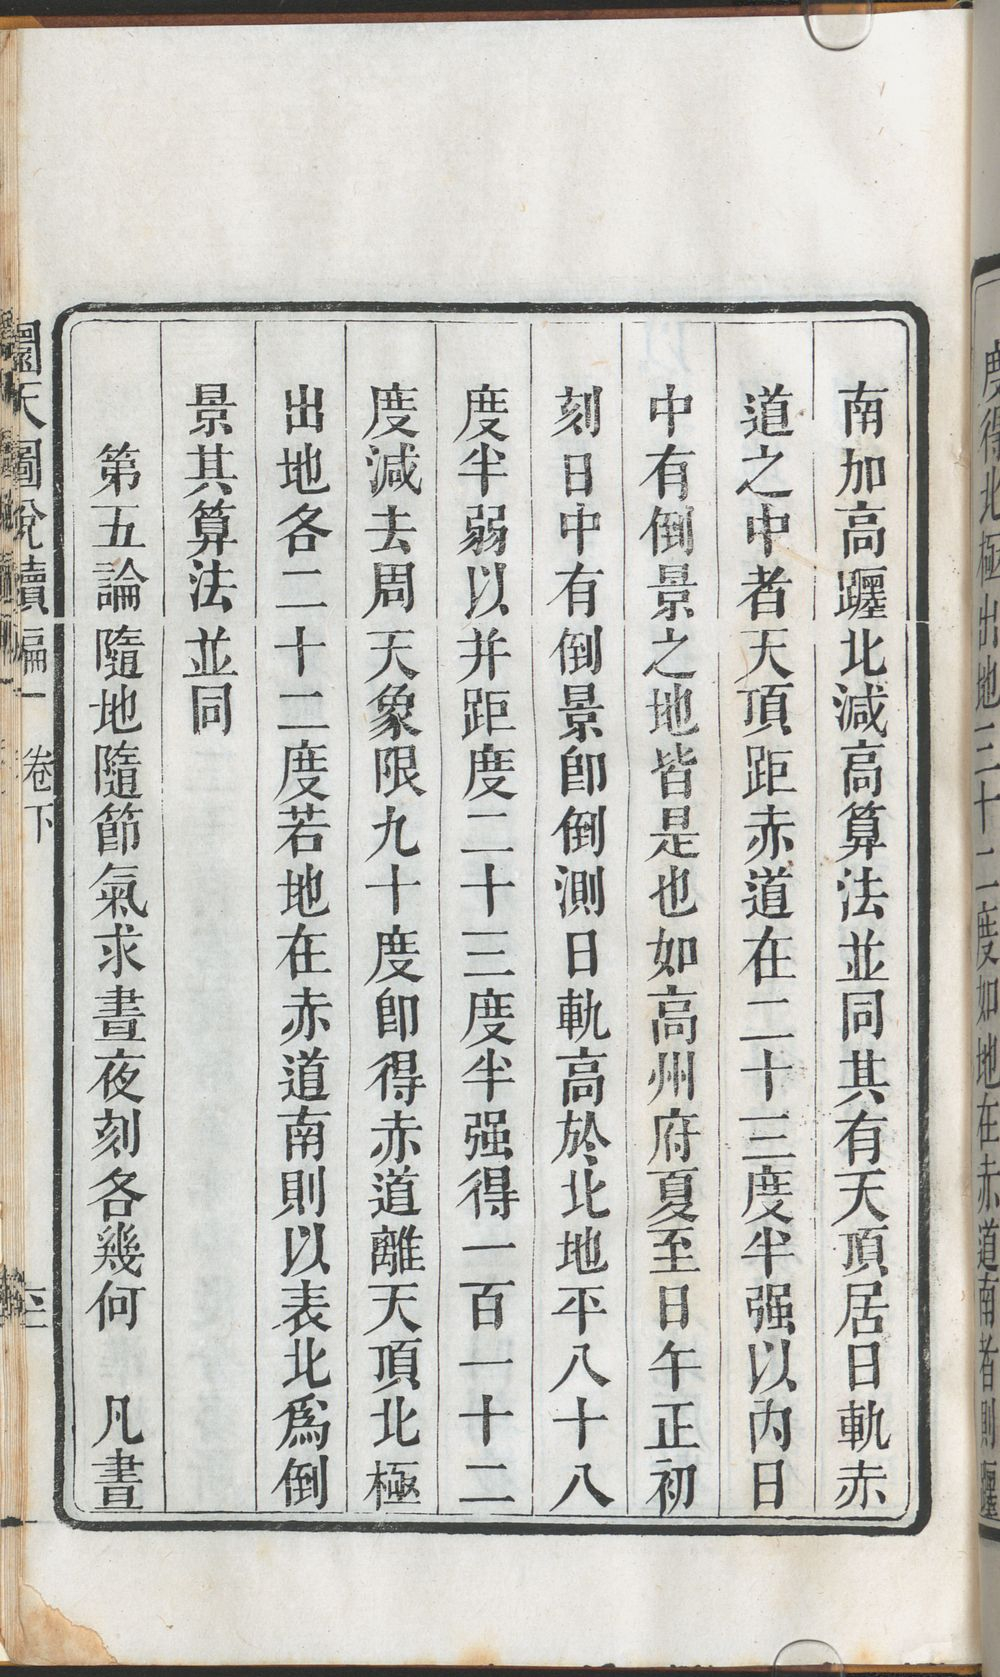 度得北極出地三十二度如地在赤道南者則躔
南加高躔北減高算法並同其有天頂居日軌赤
道之中者天頂距赤道在二十三度半强以內日
中有倒景之地皆是也如高州府夏至日午正初
刻日中有倒景卽倒測日軌高於北地平八十八
度半弱以并距度二十三度半强得一百一十二
度減去周天象限九十度卽得赤道離天頂北極
出地各二十二度若地在赤道南則以表北爲倒
景其算法並同
第五論隨地隨節氣求晝夜刻各幾何 凡晝
圜天圖說續編 卷下